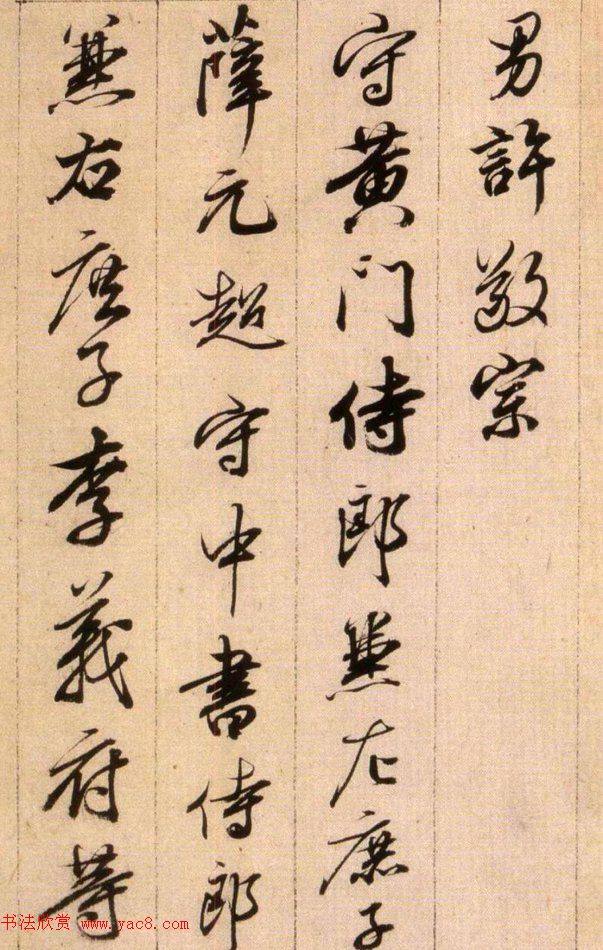 男許敬宗
守黃門侍郎兼左庶子
薛元超守中書侍郎
兼右庶子李義府等
书法欣赏 www.yac8.com